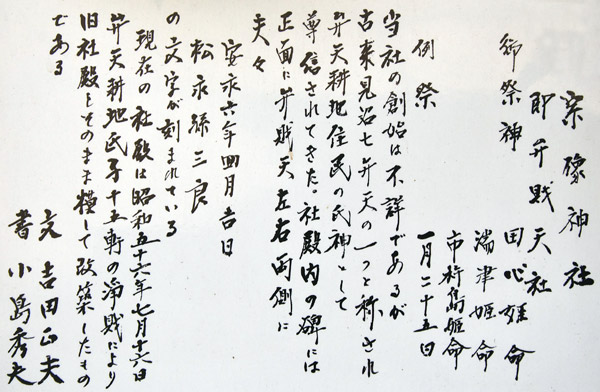 宗像神社
即弁財天社
御祭神
田心姫命
湍津姫命
市杵島姫命
例祭
一月二十五日
当社の創始は不詳であるが
古来見沼七弁天の一つと称され
弁天耕地住民の氏神として
尊信されてきた。社殿内の碑には
正面に弁財天左右両側に
夫々
安永六年四月吉日
松永孫三良
の文字が刻まれている
現在の社殿は昭和五十六年七月十六日
弁天耕地氏子十五軒の浄財により
旧社殿をそのまま模して改築したもの
である
文 吉田正夫
書 小島秀夫